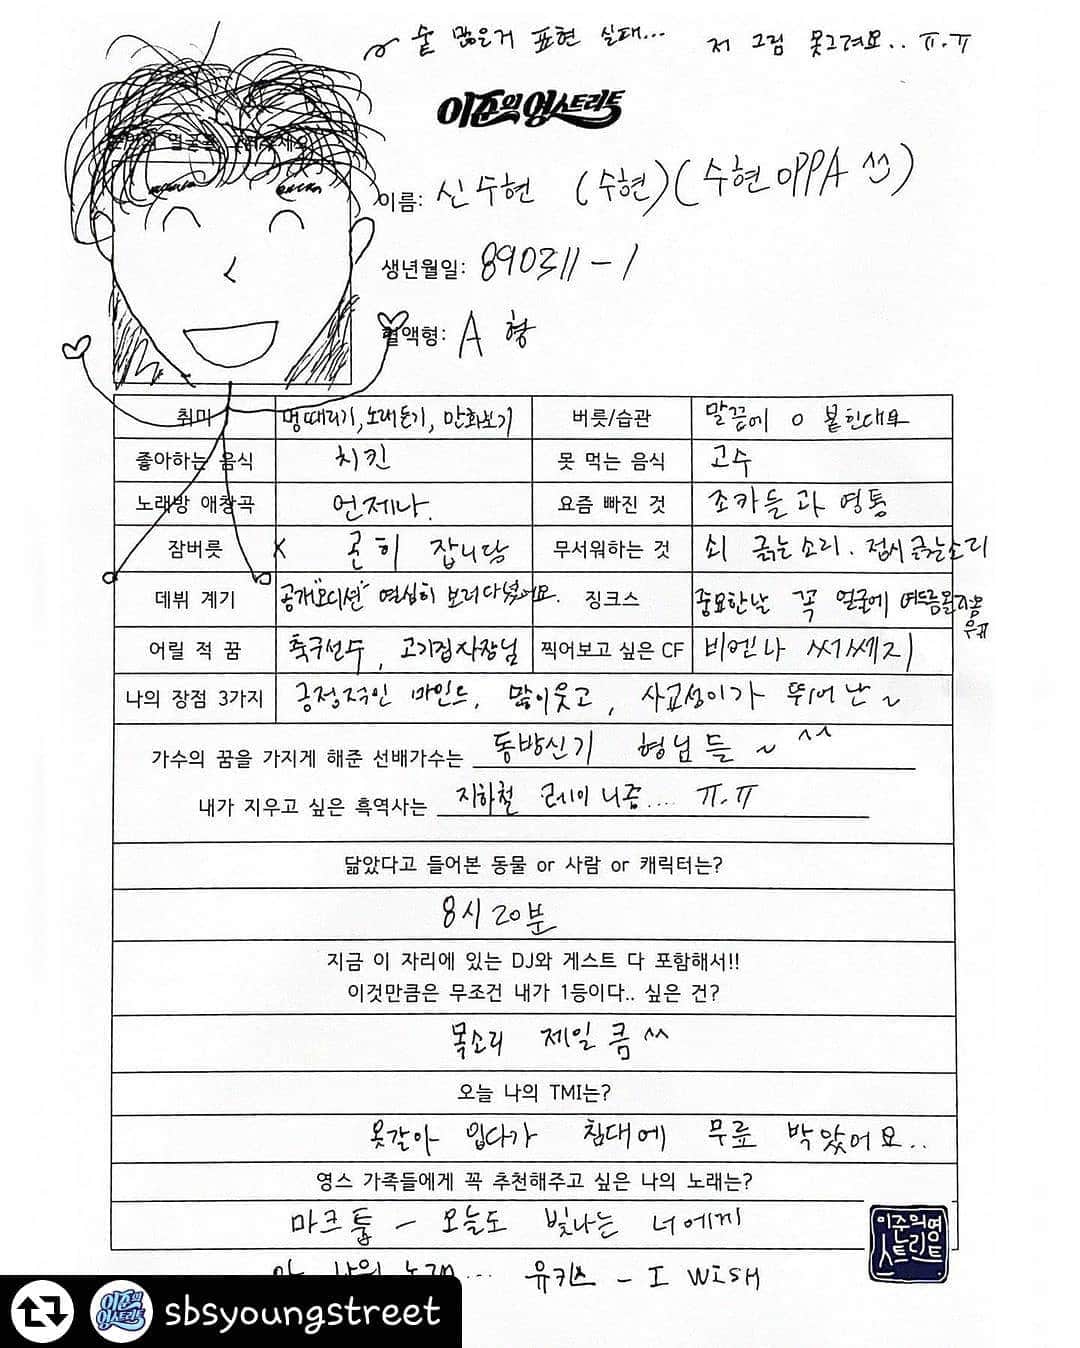 숱 많은거 표현 실패... 저 그림 못그려요.. ㅠ.ㅠ
이준의 영스트리트
이름: 신수현 (수현) (수현OPPA ^^)
생년월일: 890311-1
혈액형: A 형
취미 멍때리기, 노래듣기, 만화보기 버릇/습관 말끝에 ㅇ 붙인대요
좋아하는 음식 치킨 못 먹는 음식 고수
노래방 애창곡 언제나. 요즘 빠진 것 조카들과 영통
잠버릇 X 곤히 잡니당 무서워하는 것 쇠 긁는소리. 접시긁는소리
데뷔 계기 공개"오디션" 열심히 보러다녔어요. 징크스 중요한날 꼭 얼굴에 여드름
어릴 적 꿈 축구선수, 고기집사장님 찍어보고 싶은 CF 비엔나 쏘세지
나의 장점 3가지 긍정적인 마인드, 많이웃고, 사교성이가 뛰어난~
가수의 꿈을 가지게 해준 선배가수는 동방신기 형님들~ ^^
내가 지우고 싶은 흑역사는 지하철 레이니즘.... ㅠ.ㅠ
닮았다고 들어본 동물 or 사람 or 캐릭터는?
8시 20분
지금 이 자리에 있는 DJ와 게스트 다 포함해서!!
이것만큼은 무조건 내가 1등이다.. 싶은 건?
목소리 제일 큼 ^^
오늘 나의 TMI는?
옷갈아 입다가 침대에 무릎 박았어요..
영스 가족들에게 꼭 추천해주고 싶은 나의 노래는?
마크툽 - 오늘도 빛나는 너에게
이준의영
스트리트
유키스 - I WISH
sbsyoungstreet